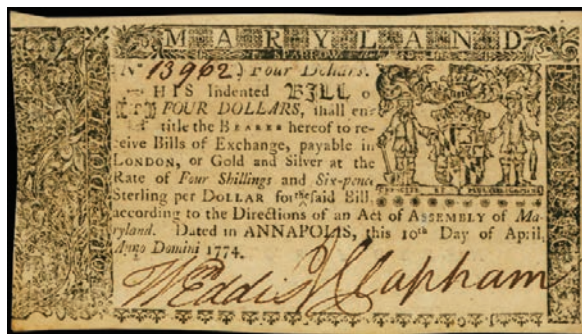 MARYLAND
No 13962) Four Dollars.
THIS Indented BILL o
FOUR DOLLARS, shall en-
title the BEARER hereof to re-
ceive Bills of Exchange, payable in
LONDON, or Gold and Silver at the
Rate of Four Shillings and Six-pence
Sterling per DOLLAR for the said Bill,
according to the Directions of an Act of ASSEMBLY of Ma-
ryland. Dated in ANNAPOLIS, this 10th Day of April,
Anno Domini 1774.
W Eddis J Clapham